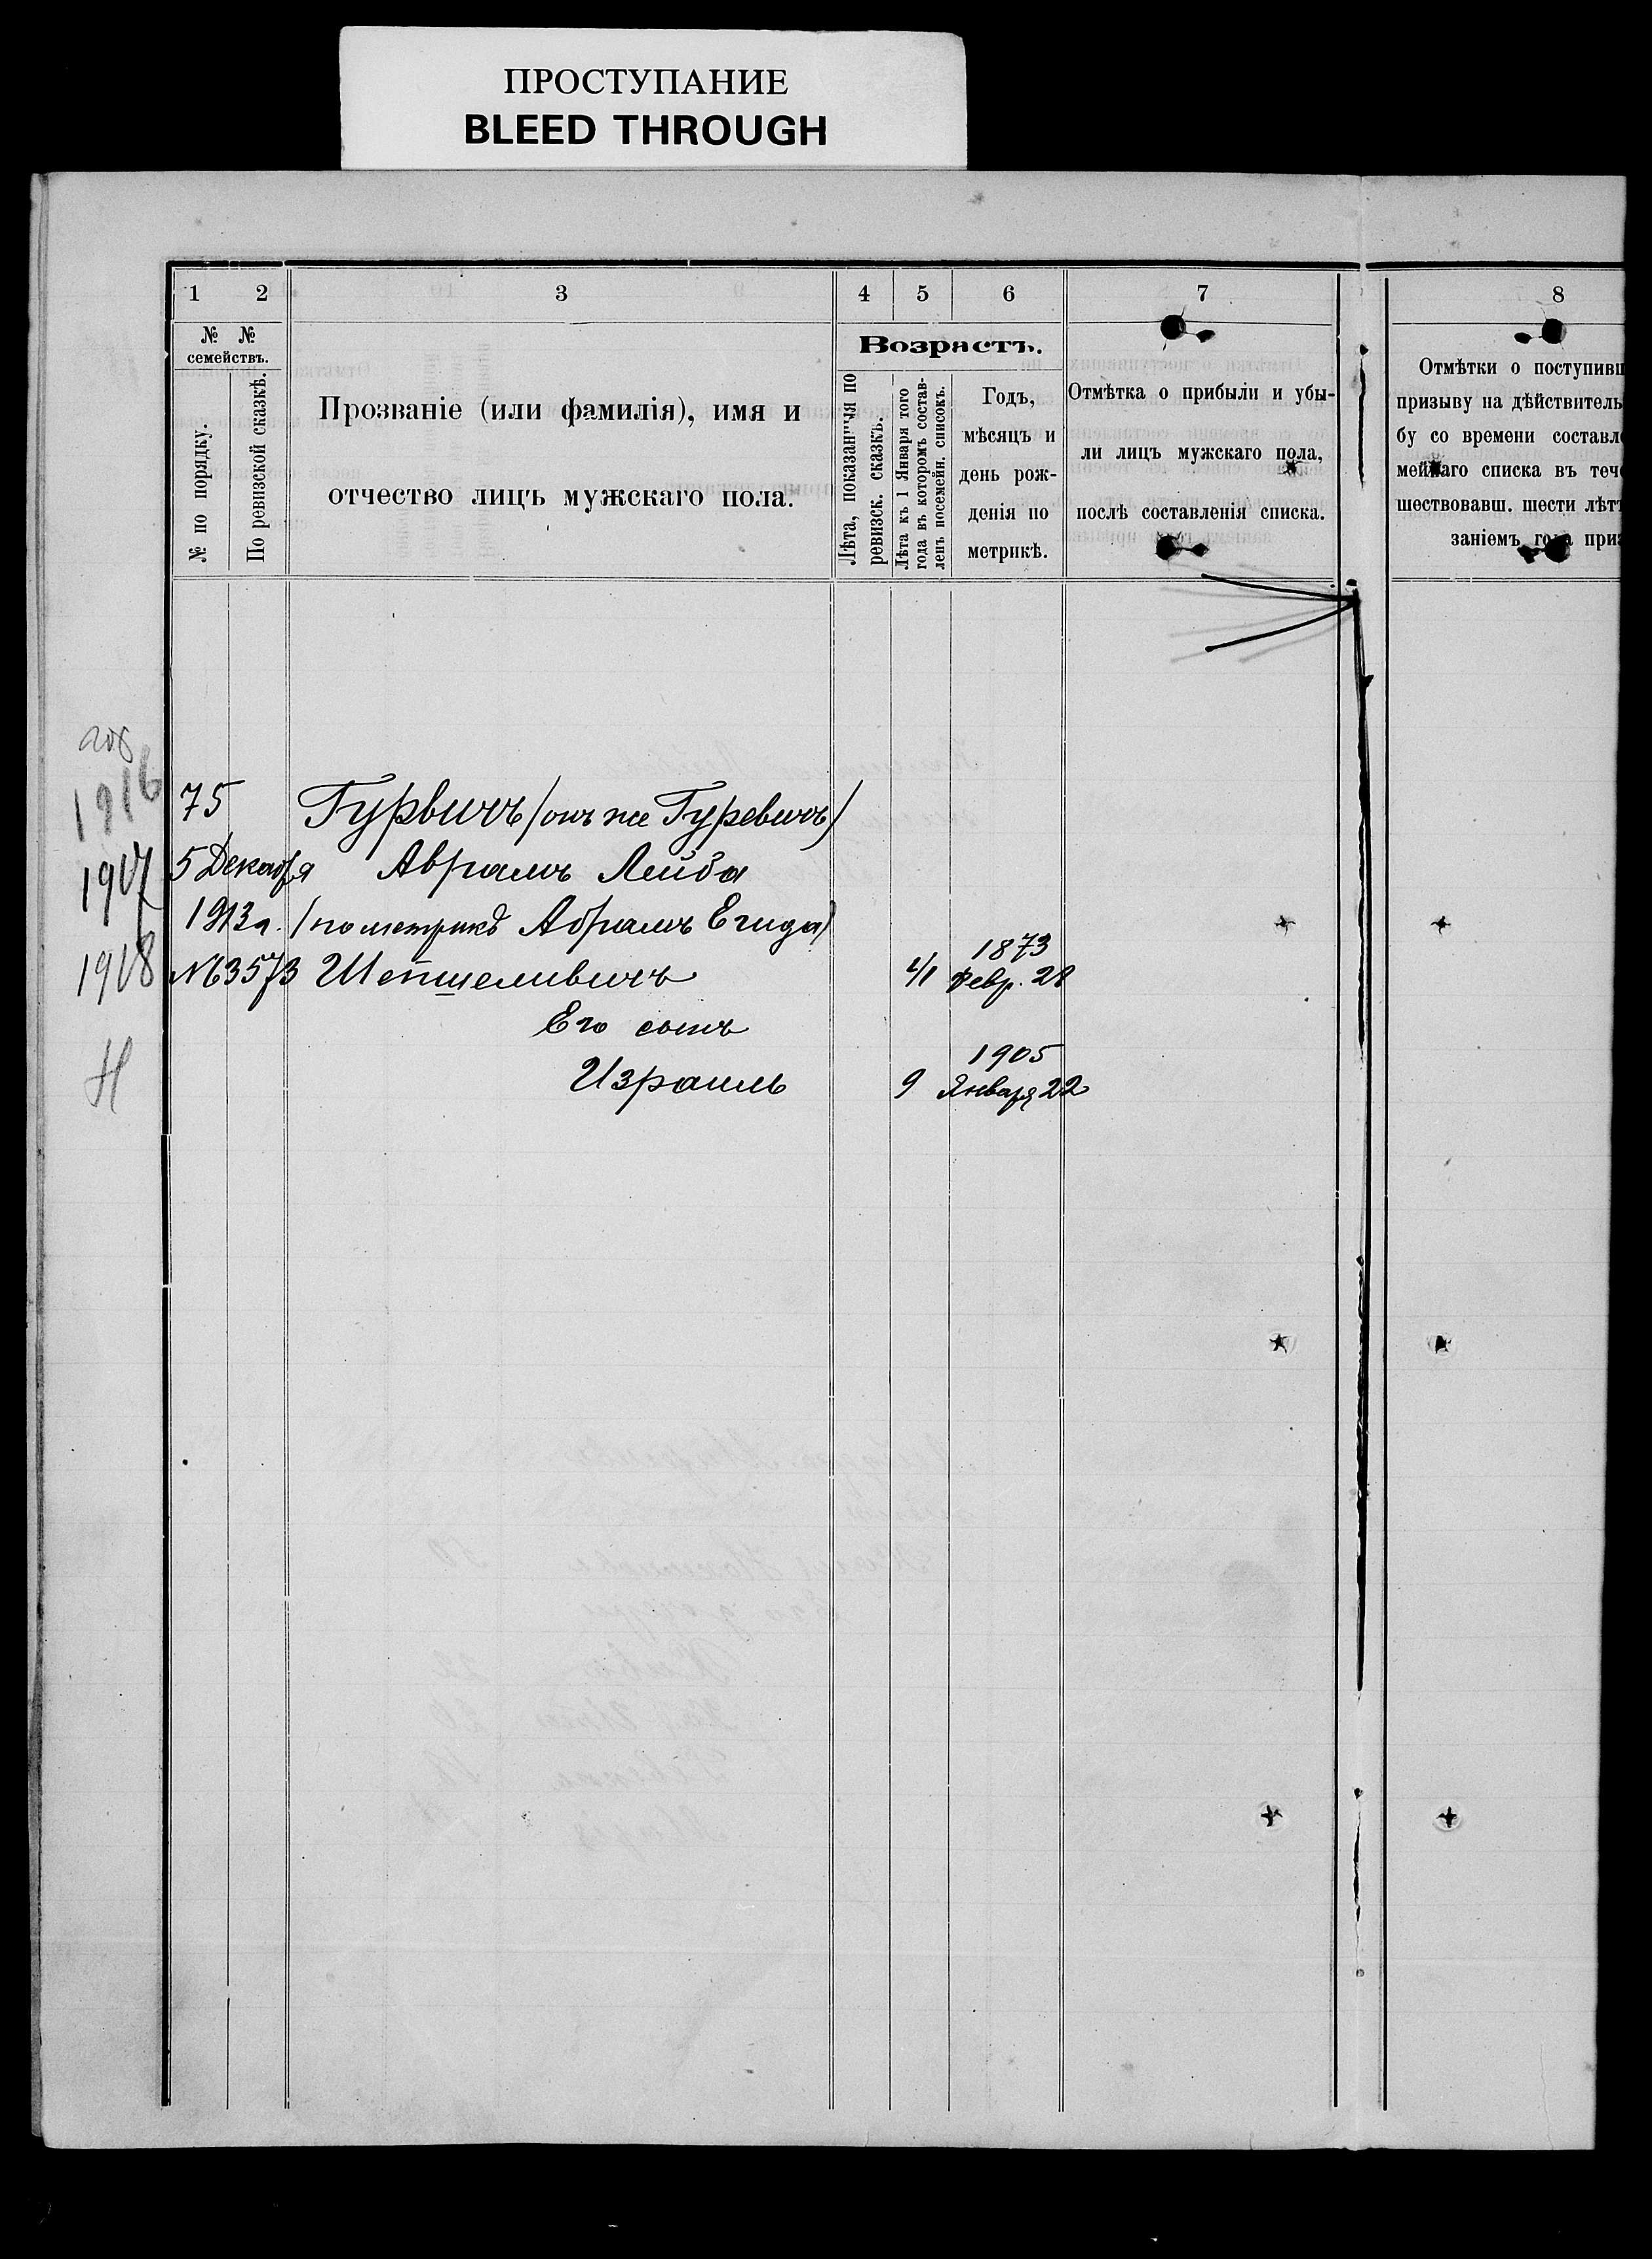 ПРОСТУПАНИЕ
BLEED THROUGH
1 2 3 4 5 6 7 8
№ № семействъ.
№ по порядку.
По ревизской сказкѣ.
Прозваніе (или фамилія), имя и
отчество лицъ мужскаго пола.
Возрастъ.
Лѣта, показанныя по
ревизск. сказкѣ.
Лѣта къ 1 Января того
года въ которомъ состав-
ленъ посемейн. списокъ.
Годъ,
мѣсяцъ и
день рож-
денія по
метрикѣ.
Отмѣтка о прибыли и убы-
ли лицъ мужскаго пола,
послѣ составленія списка.
Отмѣтки о поступивш
призыву на дѣйствитель
бу со времени составл
мейнаго списка въ теч
шествовавш. шести лѣт
заніемъ года приз
1916 75 Гурвичъ (онъ же Гуревичъ)
1917 5 Декабря Аврамъ Лейба
1913 г. (по метрикѣ Абрамъ Егида)
1873
1918 № 3573 Шепшеливичъ 41 Февр. 28
Его сынъ
1905
Израиль 9 Января 22